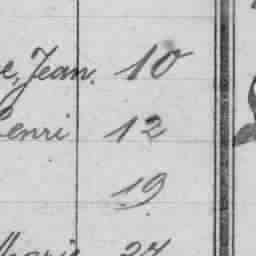 Jean. 10
Henri 12
19
Marie 24